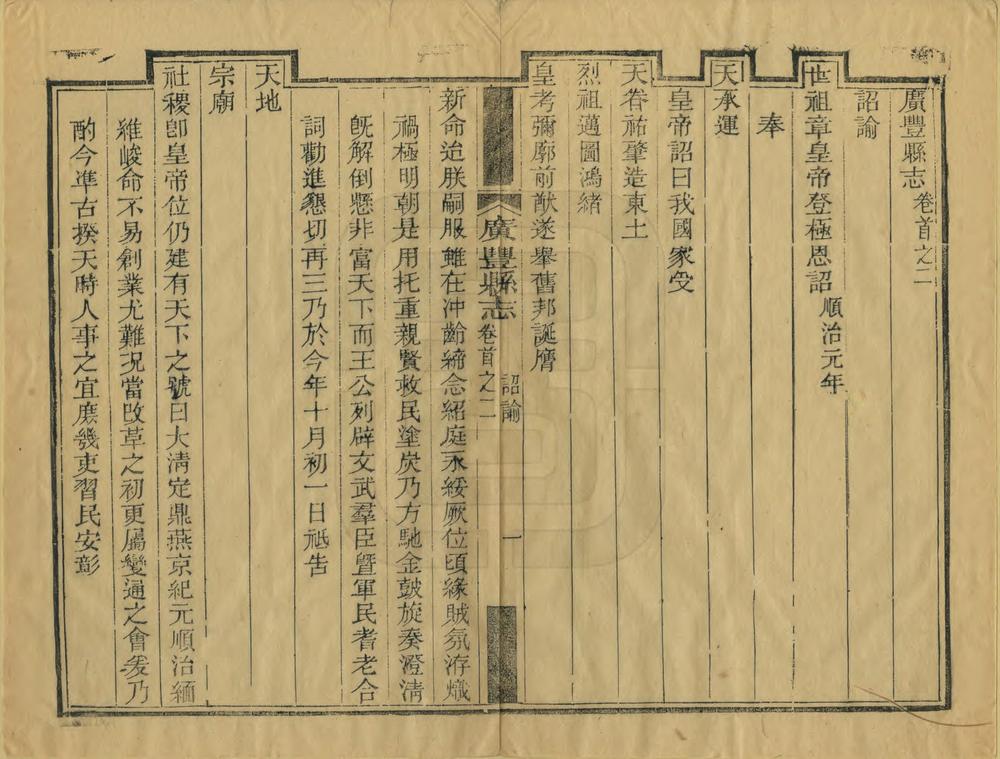 廣豐縣志 卷首之二
詔諭
世祖章皇帝登極恩詔 順治元年
奉
天承運
皇帝詔曰我國家受
天眷祐肇造東土
烈祖邁圖鴻緒
皇考彌廓前猷遂舉舊邦誕膺
廣豐縣志 卷首之二 詔諭 一
新命迨朕嗣服雖在沖齡締念紹庭永綏厥位頃緣賊氛洊熾
禍極明朝是用托重親賢救民塗炭乃方馳金鼓旋奏澄清
旣解倒懸非富天下而王公列辟文武羣臣暨軍民耆老合
詞勸進懇切再三乃於今年十月初一日祗告
天地
宗廟
社稷卽皇帝位仍建有天下之號曰大淸定鼎燕京紀元順治緬
維峻命不易創業尤難况當改革之初更屬變通之會爰乃
酌今凖古揆天時人事之宜庶幾吏習民安彰